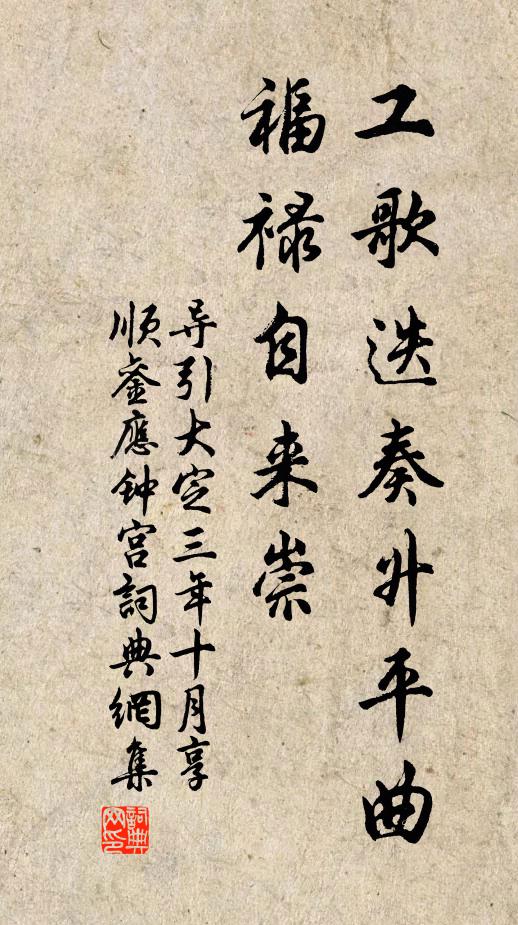 工歌迭奏升平曲
福禄自来崇
导引大定三年十月享
顺銮應钟宫詞典網集
詞典网印